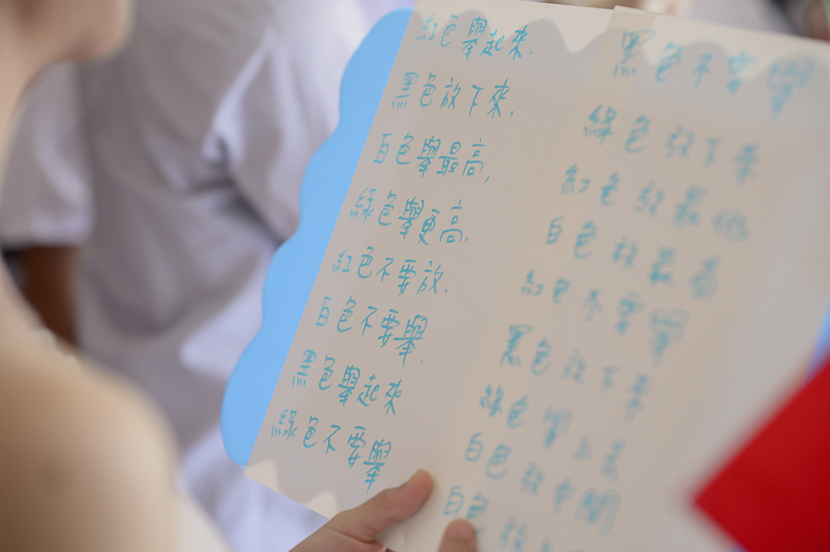 紅色舉起來.
黑色放下來.
白色舉最高.
綠色舉更高.
紅色不要放.
白色不要舉.
黑色舉起來
綠色不要舉
黑色不要舉
綠色放下來
紅色放最低
白色放最高
紅色不要舉
黑色放下來
綠色舉上去
白色放中間
白色放